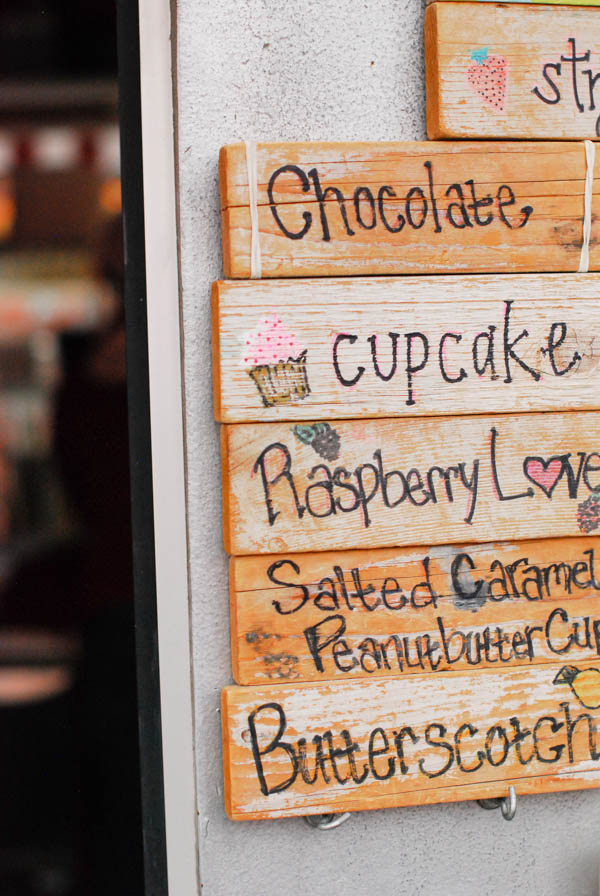 str
Chocolate
cupcake
Raspberry Love
Salted Caramel
Peanutbutter Cup
Butterscotch